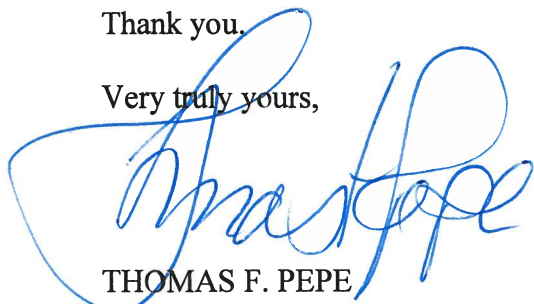 Thank you.
Very truly yours,
Thomas Pepe
THOMAS F. PEPE